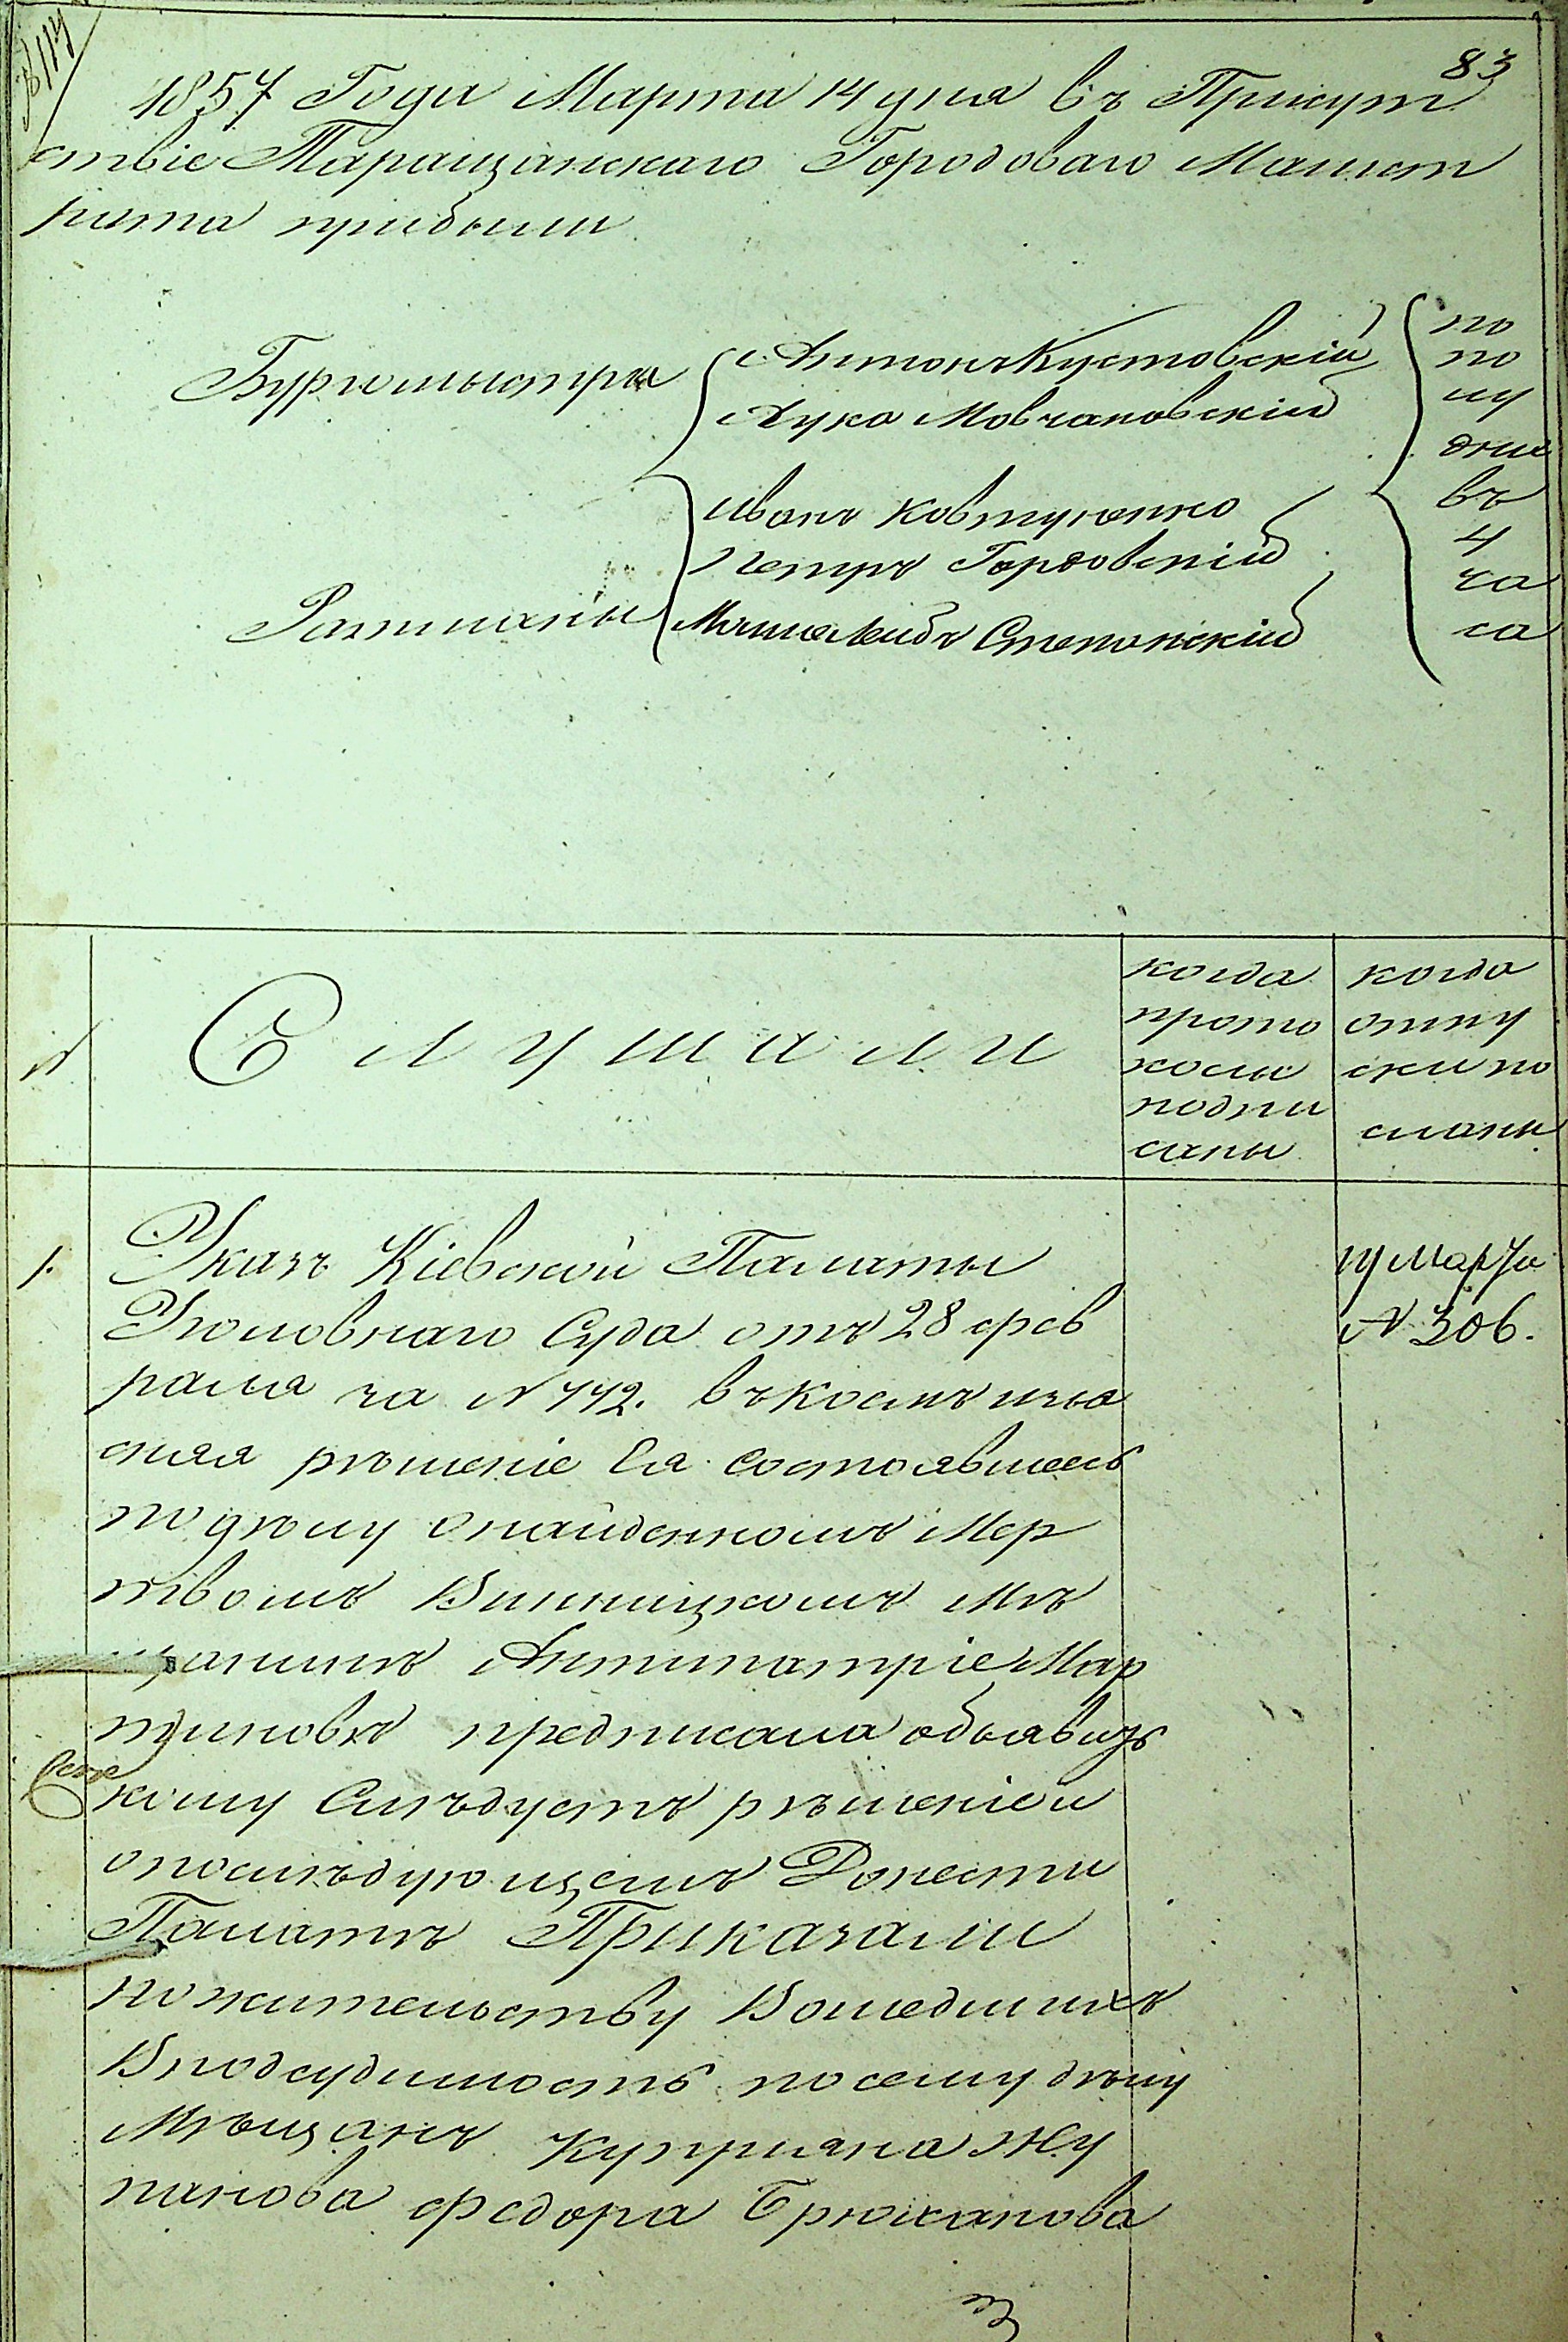 83
1857 Года Марта 14 дня въ Присут
ствіе Таращанскаго Городоваго Магист
рата прибыли
Бургомыстры
Антонъ Кустовскій
Лука Мовчановскій
Ратманы
Иванъ Ковтуненко
Петръ Гордовскій
Мошко Лейбъ Степанскій
по
по
лу
дни
въ
4
ча
са
№
Слушали
когда
прото
колы
подпи
саны
когда
отпу
ски по
сланы
1.
Указъ Кіевской Палаты
Уголовнаго Суда отъ 28 фев
раля за № 442. въ коемъ изъя
сняя рѣшеніе Ея состоявшеесь
по дѣлу о найденномъ Мер
твомъ Винницкомъ Мѣ
щанинѣ Антипатріе Мар
тыновѣ предписала объявить
кому Слѣдуетъ рѣшеніе и
о послѣдующемъ Донести
Палатѣ Приказали
по жительству Вошедшихъ
В подсудимость по сему дѣлу
Мѣщанъ Куприяна Жу
панова Федора Брюханова
14 Марта
№ 306.